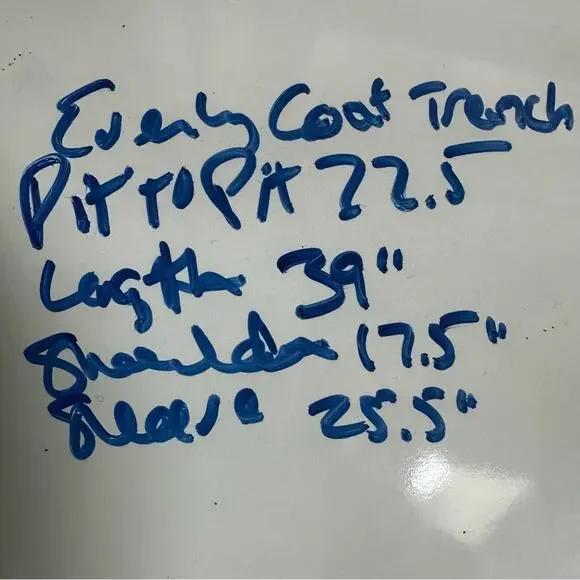 Evenly Coat Trench
Pit to Pit 22.5
Length 39"
Shoulder 17.5"
Sleeve 25.5"